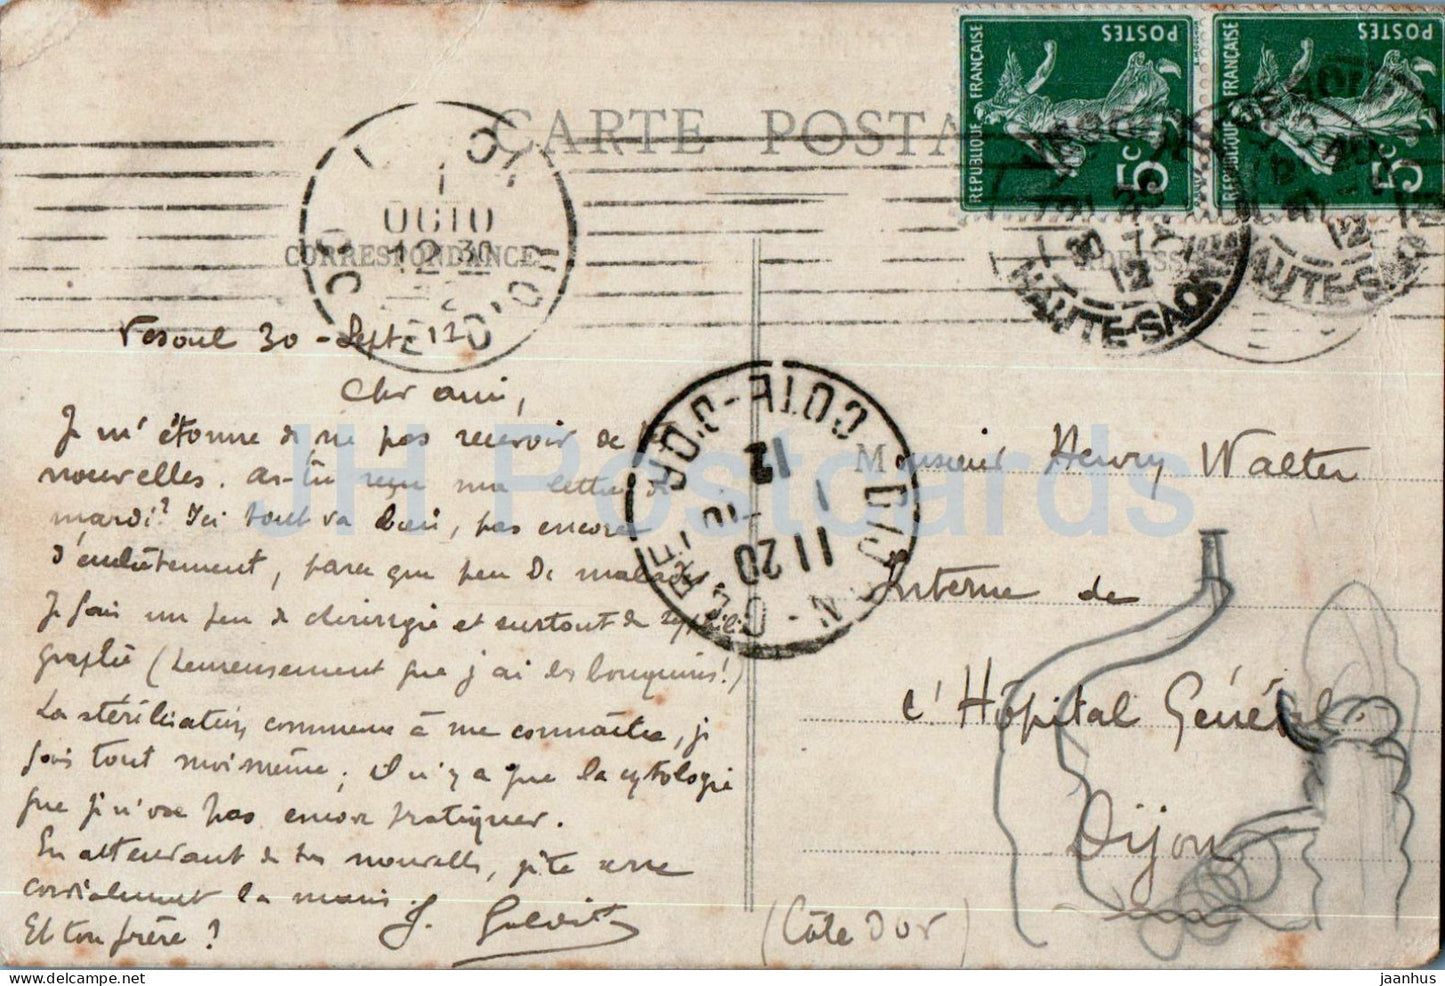 CARTE POSTA
CORRESPONDANCE
ADRESSE
POSTES
REPUBLIQUE FRANÇAISE
5c
POSTES
REPUBLIQUE FRANÇAISE
5c
HAUTE-SAONE
30
12
HAUTE-SAO
12
1
OCTO
12 30
COTE D'OR
DIJON - GARE
COTE-D'OR
11 20
1 -10
12
Vesoul 30 - Sept 12
Cher ami,
Je m'étonne de ne pas recevoir de
nouvelles. as-tu reçu ma lettre de
mardi? Ici tout va bien, pas encore
d'embêtement, parce que peu de
Je fais un peu de chirurgie et surtout de
graphie (heureusement que j'ai les bouquins!)
La stérilisation commence à me connaître, je
fais tout moi même; il n'y a que la cytologie
que je n'ose pas encore pratiquer.
En attendant de tes nouvelles, je te serre
cordialement la main.
Et ton frère?
Monsieur Henry Walter
Interne de
l'Hôpital Général
Dijon
(Côte d'or)
JH Postcards
jaanhus @ delcampe.net